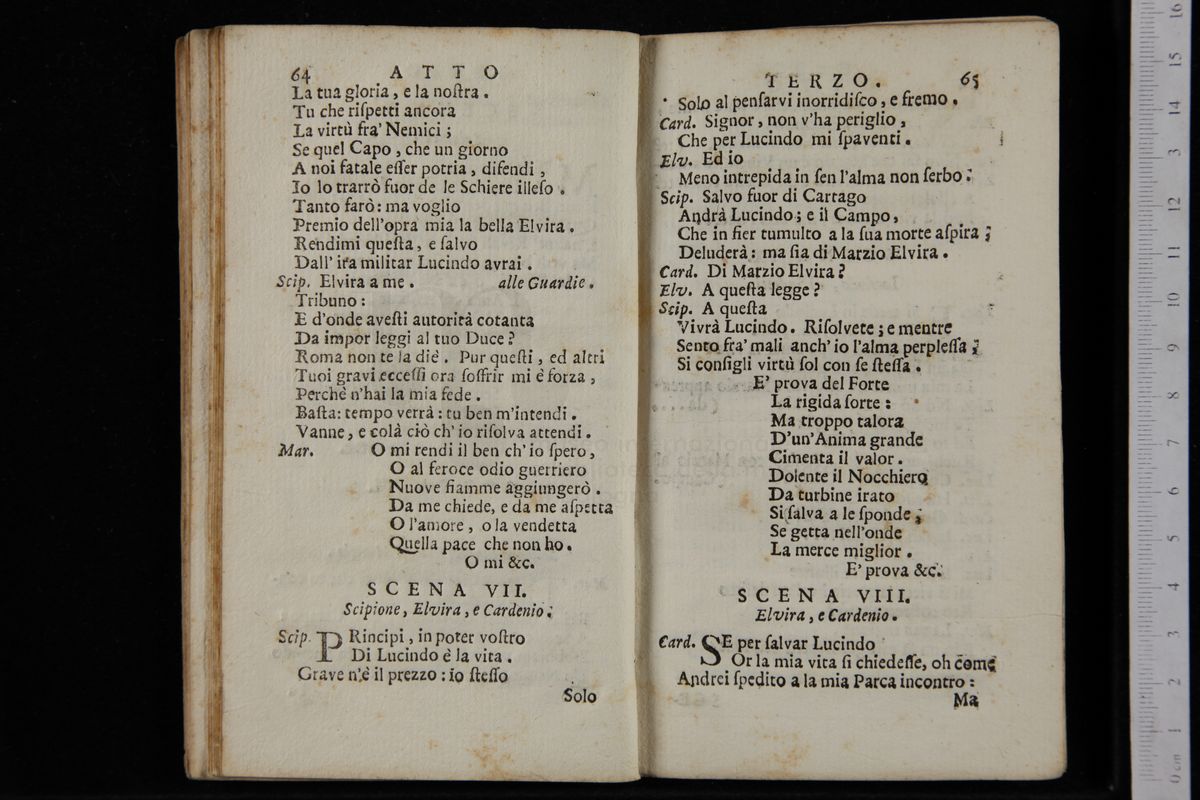 64 ATTO
La tua gloria, e la noſtra.
Tu che riſpetti ancora
La virtù fra' Nemici;
Se quel Capo, che un giorno
A noi fatale eſſer potria, difendi,
Io lo trarrò fuor de le Schiere illeſo.
Tanto farò: ma voglio
Premio dell'opra mia la bella Elvira.
Rendimi queſta, e ſalvo
Dall' ira militar Lucindo avrai.
Scip. Elvira a me. alle Guardie.
Tribuno:
E d'onde aveſti autorità cotanta
Da impor leggi al tuo Duce?
Roma non te la diè. Pur queſti, ed altri
Tuoi gravi ecceſſi ora ſoffrir mi è forza,
Perchè n'hai la mia fede.
Baſta: tempo verrà: tu ben m'intendi.
Vanne, e colà ciò ch' io riſolva attendi.
Mar. O mi rendi il ben ch' io ſpero,
O al feroce odio guerriero
Nuove fiamme aggiungerò.
Da me chiede, e da me aſpetta
O l'amore, o la vendetta
Quella pace che non ho.
O mi &c.
SCENA VII.
Scipione, Elvira, e Cardenio.
Scip. PRincipi, in poter voſtro
Di Lucindo è la vita.
Grave n'è il prezzo: io ſteſſo
Solo
TERZO. 65
Solo al penſarvi inorridiſco, e fremo.
Card. Signor, non v'ha periglio,
Che per Lucindo mi ſpaventi.
Elv. Ed io
Meno intrepida in ſen l'alma non ſerbo.
Scip. Salvo fuor di Cartago
Andrà Lucindo; e il Campo,
Che in fier tumulto a la ſua morte aſpira;
Deluderà: ma ſia di Marzio Elvira.
Card. Di Marzio Elvira?
Elv. A queſta legge?
Scip. A queſta
Vivrà Lucindo. Riſolvete; e mentre
Sento fra' mali anch' io l'alma perpleſſa;
Si conſigli virtù ſol con ſe ſteſſa.
E' prova del Forte
La rigida ſorte:
Ma troppo talora
D'un'Anima grande
Cimenta il valor.
Dolente il Nocchiero
Da turbine irato
Si ſalva a le ſponde;
Se getta nell'onde
La merce miglior.
E' prova &c.
SCENA VIII.
Elvira, e Cardenio.
Card. SE per ſalvar Lucindo
Or la mia vita ſi chiedeſſe, oh come
Andrei ſpedito a la mia Parca incontro:
Ma
16
15
14
13
12
11
10
9
8
7
6
5
4
3
2
1
0 cm